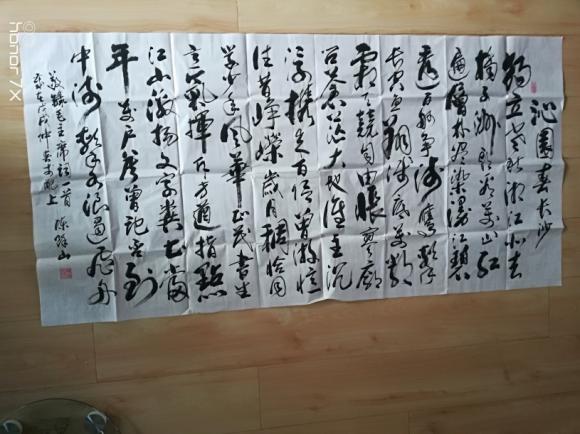 沁园春长沙
独立寒秋湘江北去
橘子洲头看万山红
遍层林尽染漫江碧
透百舸争流鹰击
长空鱼翔浅底万类
霜天竞自由怅寥廓
问苍茫大地谁主沉
浮携来百侣曾游忆
往昔峥嵘岁月稠恰同
学少年风华正茂书生
意气挥斥方遒指点
江山激扬文字粪土当
年万户侯曾记否到
中流击水浪遏飞舟
敬录毛主席词一首
岁在戊戌仲
上
honor X